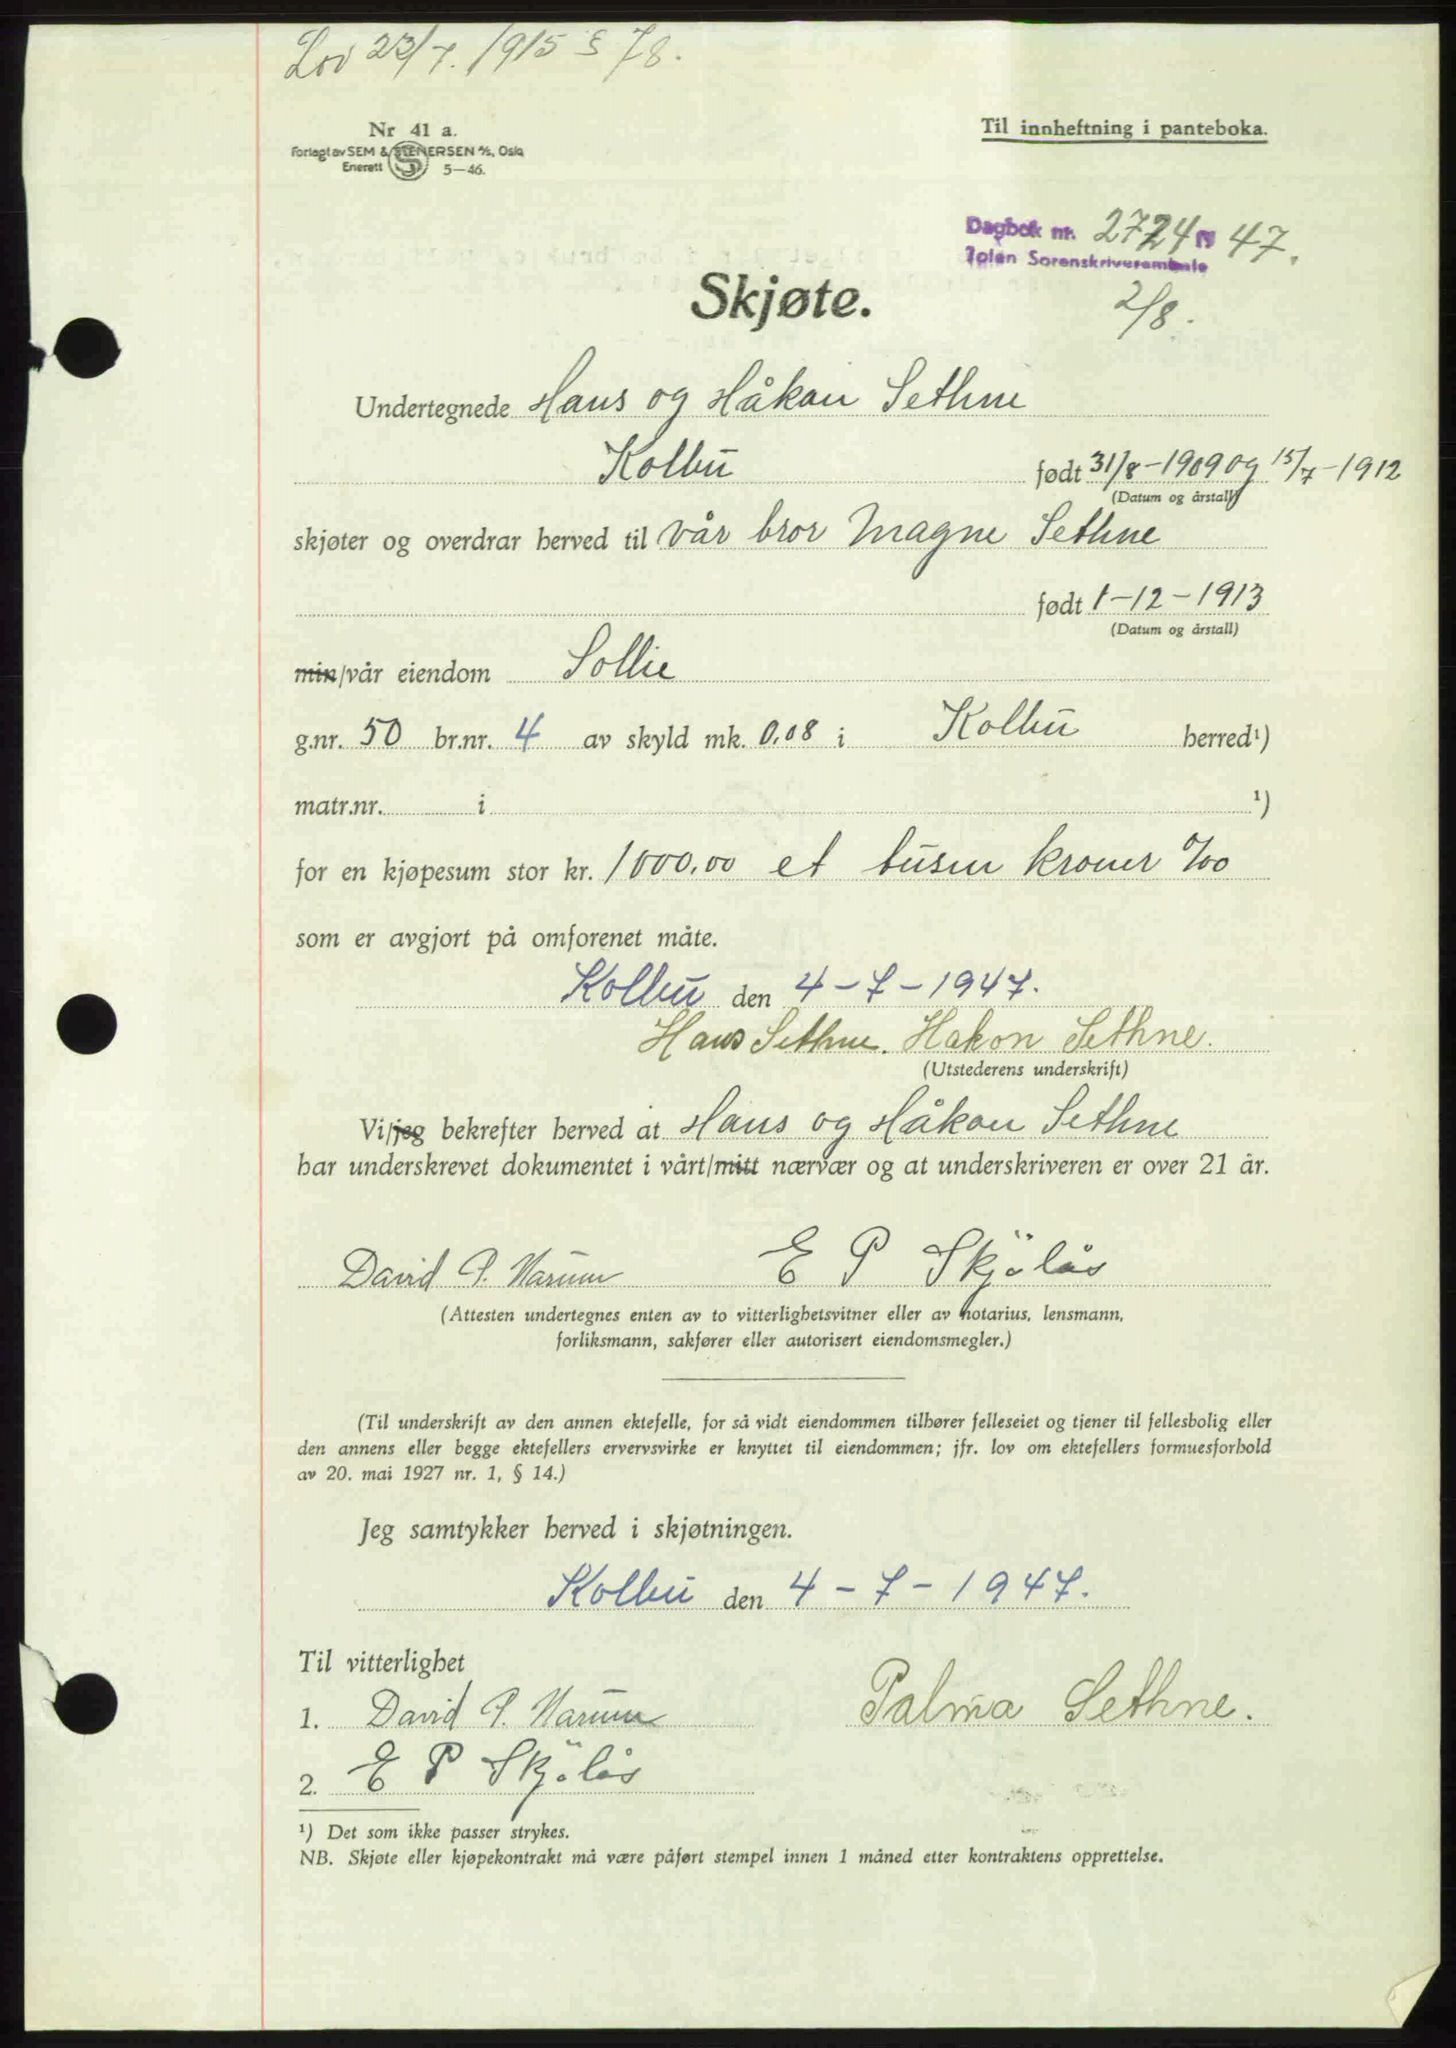 Lov 23/7. 1915 § 78.
Nr 41 a.
Forlagt av SEM & STENERSEN A/S, Oslo
Enerett 5—46.
Til innheftning i panteboka.
Dagbok nr. 2724 19 47.
Toten Sorenskriverembete
2/8.
Skjøte.
Undertegnede Hans og Håkon Sethne
Kolbu født 31/8-1909 og 15/7-1912
(Datum og årstall)
skjøter og overdrar herved til vår bror Magne Sethne
født 1-12-1913
(Datum og årstall)
min/vår eiendom Sollie
g.nr. 50 br.nr. 4 av skyld mk. 0,08 i Kolbu herred¹)
matr.nr. i ¹)
for en kjøpesum stor kr. 1000,00 et tusen kroner 0/00
som er avgjort på omforenet måte.
Kolbu den 4-7-1947.
Hans Sethne. Hakon Sethne.
(Utstederens underskrift)
Vi/jeg bekrefter herved at Hans og Håkon Sethne
har underskrevet dokumentet i vårt/mitt nærvær og at underskriveren er over 21 år.
David P. Narum E P Skjölås
(Attesten undertegnes enten av to vitterlighetsvitner eller av notarius, lensmann,
forliksmann, sakfører eller autorisert eiendomsmegler.)
(Til underskrift av den annen ektefelle, for så vidt eiendommen tilhører felleseiet og tjener til fellesbolig eller
den annens eller begge ektefellers ervervsvirke er knyttet til eiendommen; jfr. lov om ektefellers formuesforhold
av 20. mai 1927 nr. 1, § 14.)
Jeg samtykker herved i skjøtningen.
Kolbu den 4-7-1947.
Til vitterlighet
1. David P. Narum Palma Sethne.
2. E P Skjölås
¹) Det som ikke passer strykes.
NB. Skjøte eller kjøpekontrakt må være påført stempel innen 1 måned etter kontraktens opprettelse.